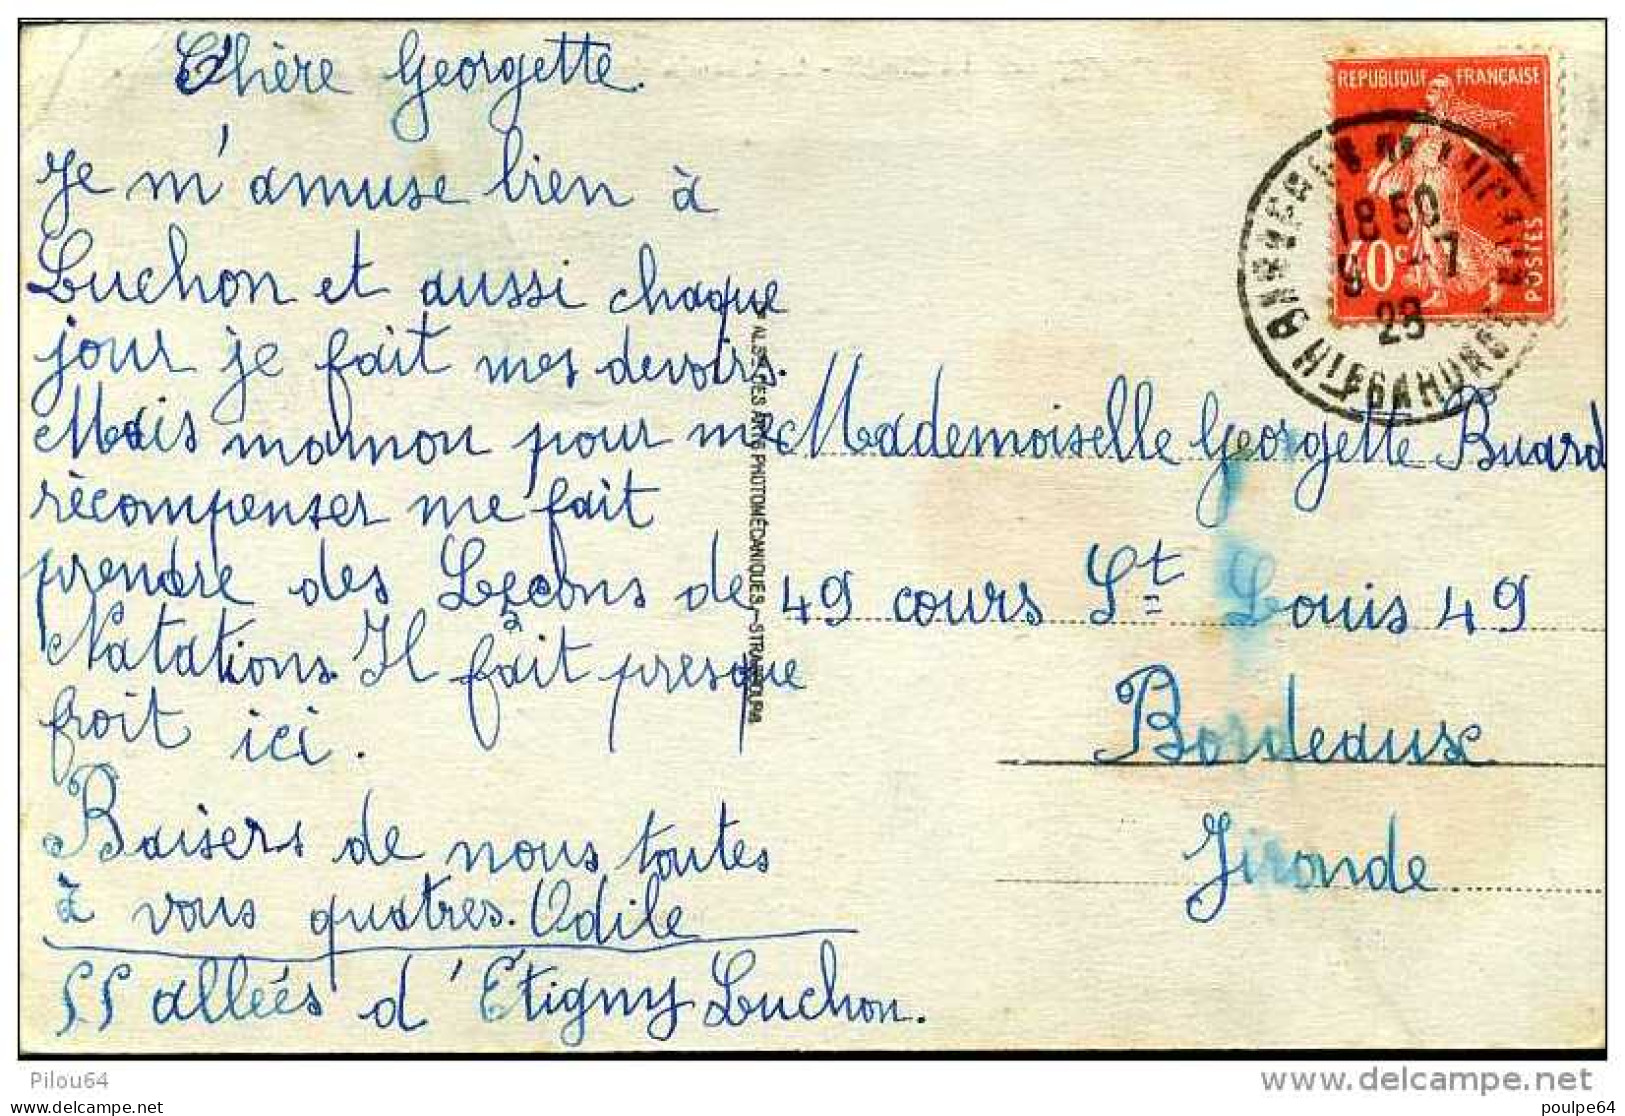 Chère Georgette.
Je m'amuse bien à
Luchon et aussi chaque
jour je fait mes devoirs.
Mais maman pour me
récompenser me fait
prendre des Leçons de
Natations. Il fait presque
froit ici.
Baisers de nous toutes
à vous quatres. Odile
55 allées d'Etigny Luchon.
DES ARTS PHOTOMÉCANIQUES — STRASBOURG
REPUBLIQUE FRANÇAISE
POSTES
18 50
9 - 7
28
Hte GARONNE
Mademoiselle Georgette Buard
49 cours St Louis 49
Bordeaux
Gironde
Pilou64
www.delcampe.net
poulpe64